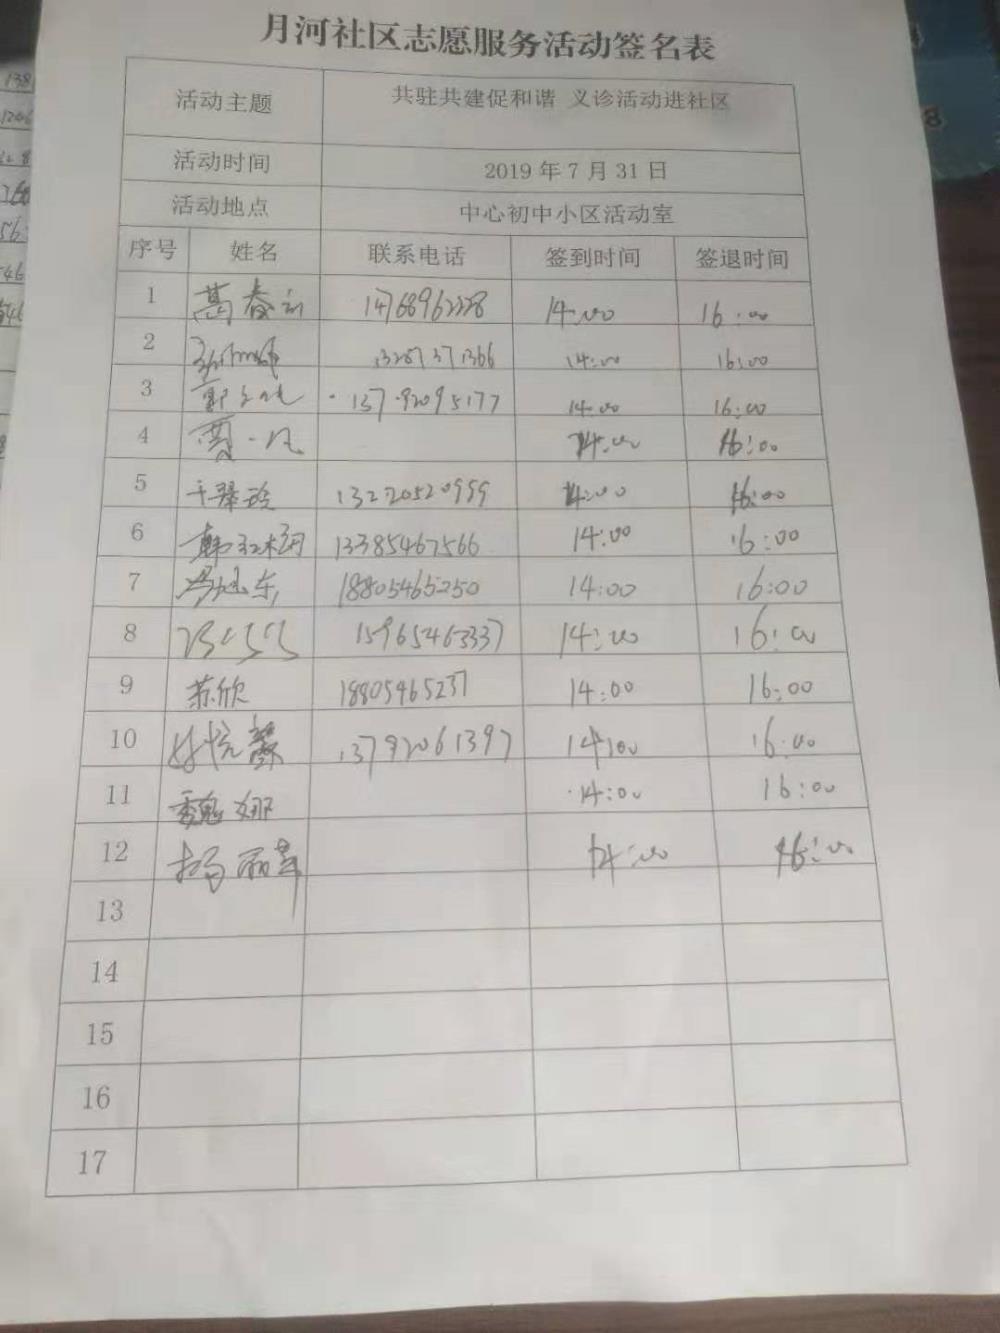 月河社区志愿服务活动签名表
活动主题 共驻共建促和谐 义诊活动进社区
活动时间 2019 年 7 月 31 日
活动地点 中心初中小区活动室
序号 姓名 联系电话 签到时间 签退时间
1 14768962228 14:00 16:00
2 13287371366 14:00 16:00
3 13792095177 14:00 16:00
4 14:00 16:00
5 13220520999 14:00 16:00
6 13385467566 14:00 16:00
7 18805465250 14:00 16:00
8 15965463337 14:00 16:00
9 苏欣 18805465237 14:00 16:00
10 13792061397 14:00 16:00
11 魏娜 14:00 16:00
12 杨丽苹 14:00 16:00
13
14
15
16
17